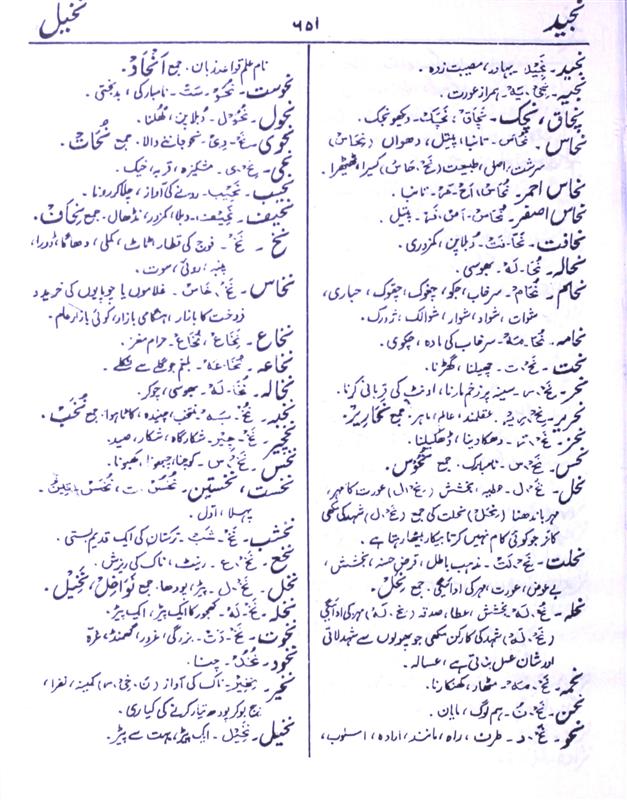 نجید
۶۵۱
نخیل
نجید۔ نَجِیْد۔ بہادر، مصیبت زدہ۔
نجیہ۔ ہمراز عورت۔
نچاق، نچک۔ نَچَاق، نَچَک۔ دیکھو نچک۔
نحاس۔ نُحَاس۔ تانبا، پیتل، دھواں (نِحَاس)
سرشت، اصل، طبیعت
نحاس احمر۔ تانبا۔
نحاس اصفر۔ پیتل۔
نحافت۔ نَحَا۔فَتْ۔ دُبلاپن، کمزوری۔
نحالہ۔ نُحَا۔لَہ۔ بھوسی۔
نحام۔ نُحَام۔ سرخاب،
نحامہ۔ نُحَا۔مَہ۔ سرخاب کی مادہ، چکوی۔
نحت۔ نَحْ۔ت۔ چھیلنا، گھڑنا۔
نحر۔ نَحْ۔ر۔ سینہ پر زخم مارنا، اونٹ کی قربانی کرنا۔
نحریر۔ عقلمند، عالم، ماہر۔ جمع نحاریر۔
نحز۔ دھکا دینا، ڈھکیلنا۔
نحس۔ نَحْ۔س۔ نامبارک۔ جمع نُحُوْس۔
نحل۔ نَحْ۔ل۔ عطیہ، بخشش (نُحْ۔ل) عورت کا مہر،
مہر باندھنا (نِحَل) نحلت کی جمع (نَحْ۔ل) شہد کی مکھی
کا نر جو کوئی کام نہیں کرتا بیکار بیٹھا رہتا ہے۔
نحلت۔ نِحْ۔لَتْ۔ مذہب باطل، قرض حسنہ، بخشش،
بے عوض، عورت، مہر کی ادائیگی۔ جمع نِحَل۔
نحلہ۔ بخشش، عطا، صدقہ مہر کی ادائیگی
(نَحْ۔لَہ) شہد کی کارکن مکھی جو پھولوں سے شہد لاتی
اور شان عسل بناتی ہے، عسالہ۔
نحمہ۔ نَحْ۔مَہ۔ کھنکارنا۔
نحن۔ نَحْ۔نُ۔ ہم لوگ، مایان۔
نحو۔ نَحْ۔و۔ طرف، راہ، مانند، ارادہ، اسلوب،
نام علم قواعد زبان۔ جمع اَنْحَاء۔
نحوست۔ نُحُوْ۔سَتْ۔ نامبارکی، بدبختی۔
نحول۔ نُحُوْل۔ دُبلاپن، گھلنا۔
نحوی۔ نَحْ۔وِیْ۔ نحو جاننے والا۔ جمع نُحَات۔
نحی۔ نِحْ۔ی۔ مشکیزہ، قربہ، خیک۔
نحیب۔ نَحِیْب۔ رونے کی آواز، چلا کر رونا۔
نحیف۔ نَحِیْف۔ دبلا، کمزور، نڈھال۔ جمع نِحَاف۔
نخ۔ نَخْ۔ فوج کی قطار، ٹاٹ، کملی، دھاگا، ڈورا،
پنبہ، روئی، سوت۔
نخاس۔ نَخْ۔خَاس۔ غلاموں یا چوپایوں کی خرید و
فروخت کا بازار، ہنگامی بازار، کوئی بازار عام۔
نخاع۔ نُخَاع، نِخَاع۔ حرام مغز۔
نخاعہ۔ نُخَا۔عَہ۔ بلغم جو گلے سے نکلے۔
نخالہ۔ نُخَا۔لَہ۔ بھوسی، چوکر۔
نخبہ۔ نُخْ۔بَہ۔ منتخب، چنیدہ، کاٹا ہوا۔ جمع نُخَب۔
نخچیر۔ نَخْ۔چِیْر۔ شکارگاہ، شکار، صید۔
نخس۔ نَخْ۔س۔ کوچنا، چبھونا،
نخست، نخستین۔
پہلا، اوّل۔
نخشب۔ نَخْ۔شَبْ۔ ترکستان کی ایک قدیم بستی۔
نخع۔ نَخْ۔ع۔ رینٹ، ناک کی ریزش۔
نخل۔ نَخْ۔ل۔ پیڑ، پودھا۔ جمع نواخل، نخیل۔
نخلہ۔ نَخْ۔لَہ۔ کھجور کا ایک پیڑ، ایک پیڑ۔
نخوت۔ نَخْ۔وَتْ۔ بزرگی، غرور، گھمنڈ، غرّہ
نخود۔ نُخُوْد۔ چنا۔
نخیر۔ نَخِیْر۔ ناک کی آواز کمینہ،
بیج بوکر پودھ تیار کرنے کی کیاری۔
نخیل۔ نَخِیْل۔ ایک پیڑ، بہت سے پیڑ۔